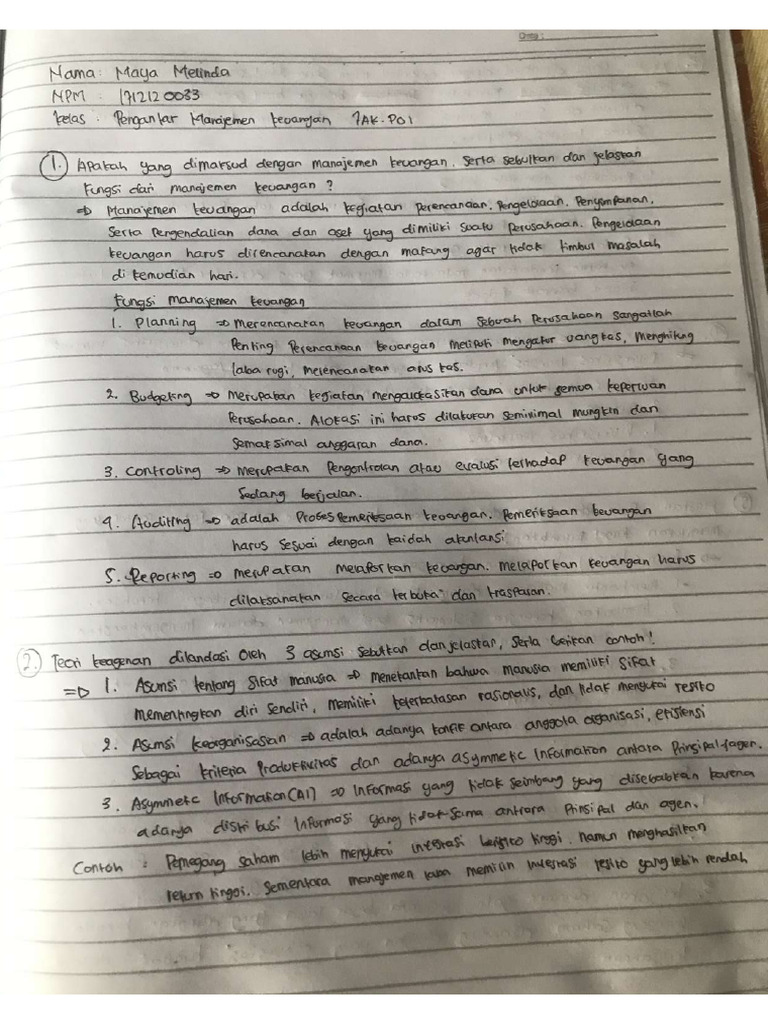 Nama : Maya Melinda
NPM : 1712120033
Kelas : Pengantar Manajemen Keuangan 7AK-P01
1. Apakah yang dimaksud dengan manajemen keuangan, serta sebutkan dan jelaskan
fungsi dari manajemen keuangan ?
⇒ Manajemen keuangan adalah kegiatan perencanaan, Pengelolaan, Penyimpanan,
serta Pengendalian dana dan aset yang dimiliki suatu Perusahaan. Pengelolaan
keuangan harus direncanakan dengan matang agar tidak timbul masalah
di kemudian hari.
Fungsi manajemen keuangan
1. Planning ⇒ merencanakan keuangan dalam sebuah Perusahaan sangatlah
Penting Perencanaan keuangan meliputi mengatur uang kas, Menghitung
laba rugi, merencanakan arus kas.
2. Budgeting ⇒ merupakan kegiatan mengalokasikan dana untuk semua keperluan
Perusahaan. Alokasi ini harus dilakukan seminimal mungkin dan
semaksimal anggaran dana.
3. Controling ⇒ merupakan Pengontrolan atau evalusi terhadap keuangan yang
sedang berjalan.
4. Auditing ⇒ adalah Proses Pemeriksaan keuangan. Pemeriksaan keuangan
harus sesuai dengan kaidah akuntansi
5. Reporting ⇒ merupakan melaporkan keuangan. melaporkan keuangan harus
dilaksanakan secara terbuka dan traspasan.
2. Teori keagenan dilandasi oleh 3 asumsi sebutkan dan jelaskan, serta berikan contoh!
⇒ 1. Asumsi tentang sifat manusia ⇒ menekankan bahwa manusia memiliki sifat
mementingkan diri sendiri, memiliki keterbatasan rasionalis, dan tidak menyukai resiko
2. Asumsi keorganisasian ⇒ adalah adanya konflik antara anggota organisasi, efisiensi
sebagai kriteria Produktivitas dan adanya asymmetic Information antara Prinsipal-agen.
3. Asymnetic Information(AI) ⇒ Informasi yang tidak seimbang yang disebabkan karena
adanya distribusi Informasi yang tidak sama antrara Prinsipal dan agen.
Contoh : Pemegang saham lebih menyukai integrasi beresiko tinggi, namun menghasilkan
return tinggi. Sementara manajemen laba memilih integrasi resiko yang lebih rendah